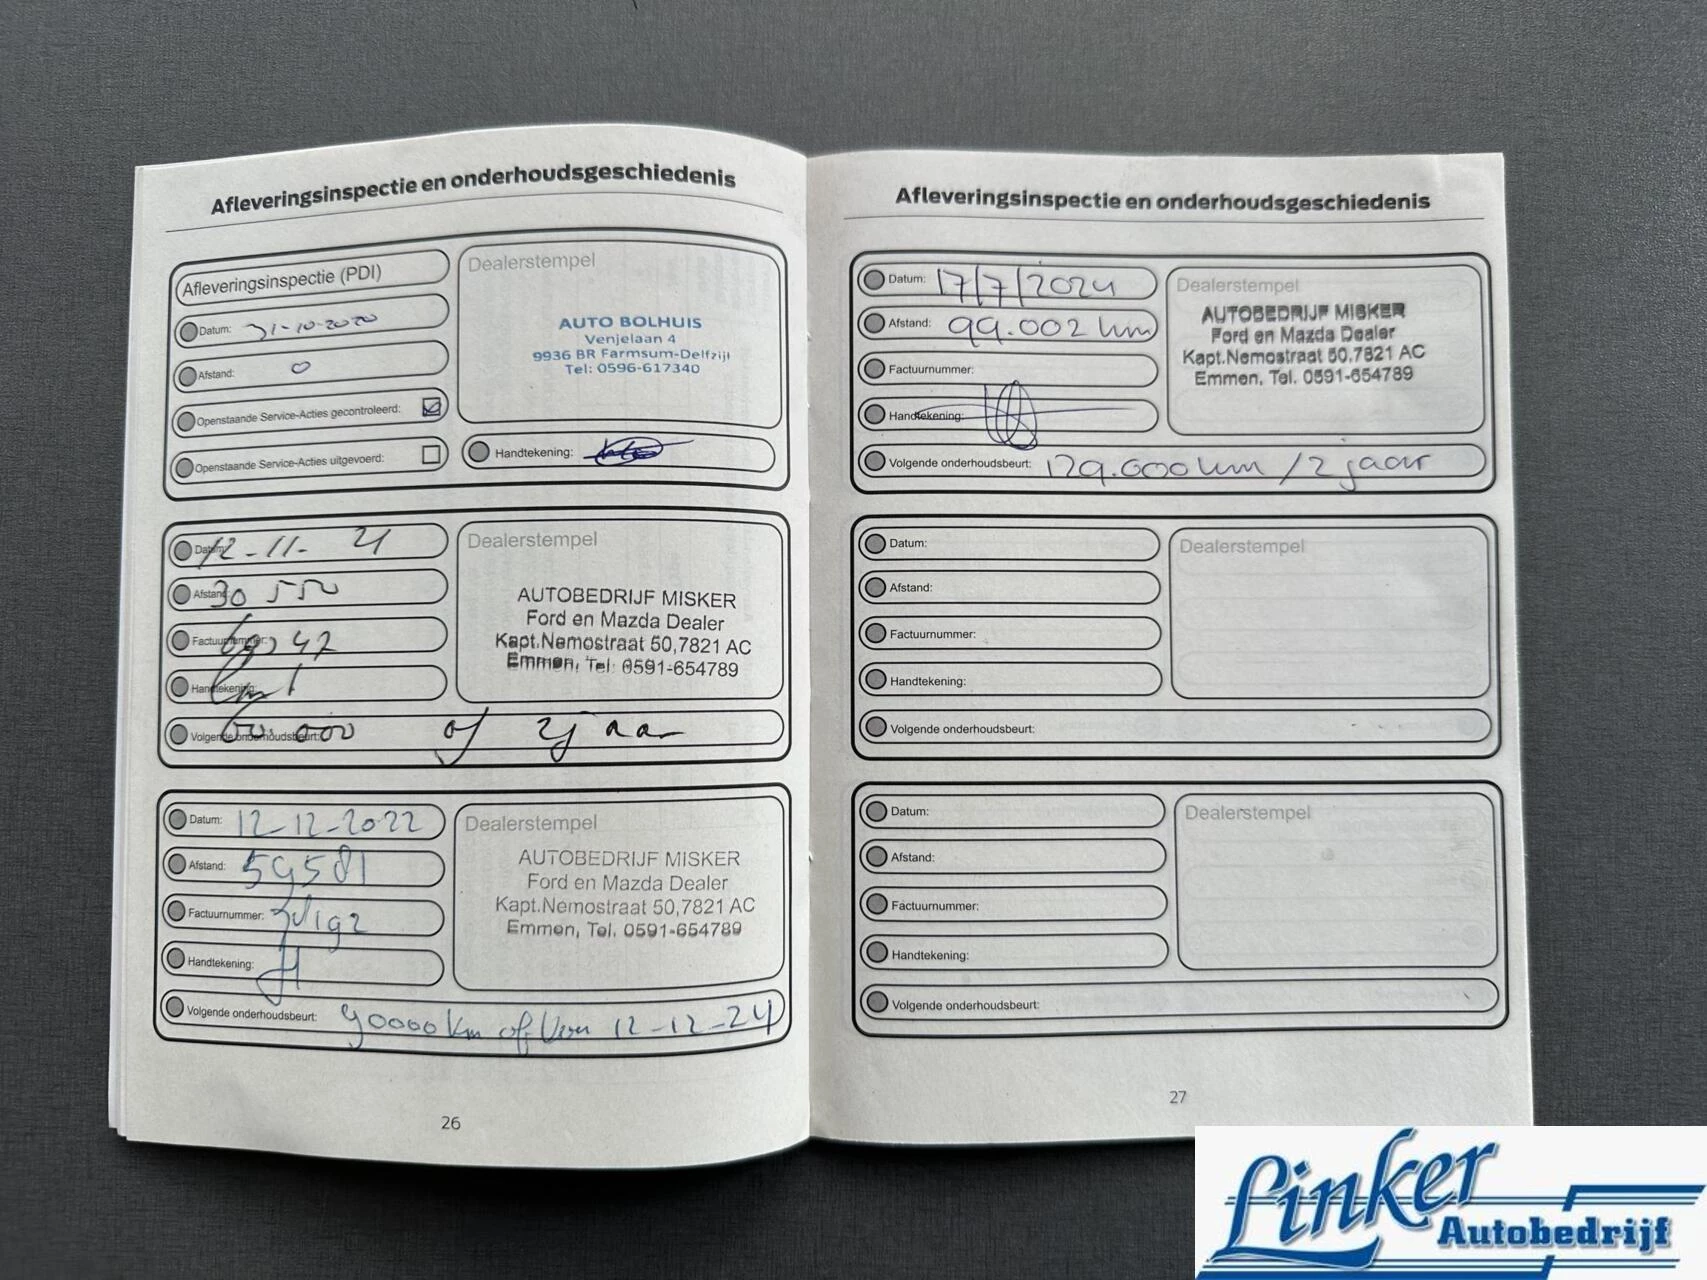 Afleveringsinspectie en onderhoudsgeschiedenis
Afleveringsinspectie (PDI)
Datum: 31-10-2020
Afstand: 0
Openstaande Service-Acties gecontroleerd:
Openstaande Service-Acties uitgevoerd:
Dealerstempel
AUTO BOLHUIS
Venjelaan 4
9936 BR Farmsum-Delfzijl
Tel: 0596-617340
Handtekening:
Datum: 12-11-21
Afstand: 30 550
Factuurnummer:
Handtekening:
Volgende onderhoudsbeurt: 60.000 of 2 jaar
Dealerstempel
AUTOBEDRIJF MISKER
Ford en Mazda Dealer
Kapt.Nemostraat 50,7821 AC
Emmen, Tel. 0591-654789
Datum: 12-12-2022
Afstand: 59581
Factuurnummer:
Handtekening:
Volgende onderhoudsbeurt: 90000 km of 12-12-24
Dealerstempel
AUTOBEDRIJF MISKER
Ford en Mazda Dealer
Kapt.Nemostraat 50,7821 AC
Emmen, Tel. 0591-654789
26
Afleveringsinspectie en onderhoudsgeschiedenis
Datum: 17/7/2024
Afstand: 99.002 km
Factuurnummer:
Handtekening:
Volgende onderhoudsbeurt: 129.000 km / 2 jaar
Dealerstempel
AUTOBEDRIJF MISKER
Ford en Mazda Dealer
Kapt.Nemostraat 50,7821 AC
Emmen, Tel. 0591-654789
Datum:
Afstand:
Factuurnummer:
Handtekening:
Volgende onderhoudsbeurt:
Dealerstempel
Datum:
Afstand:
Factuurnummer:
Handtekening:
Volgende onderhoudsbeurt:
Dealerstempel
27
Linker
Autobedrijf